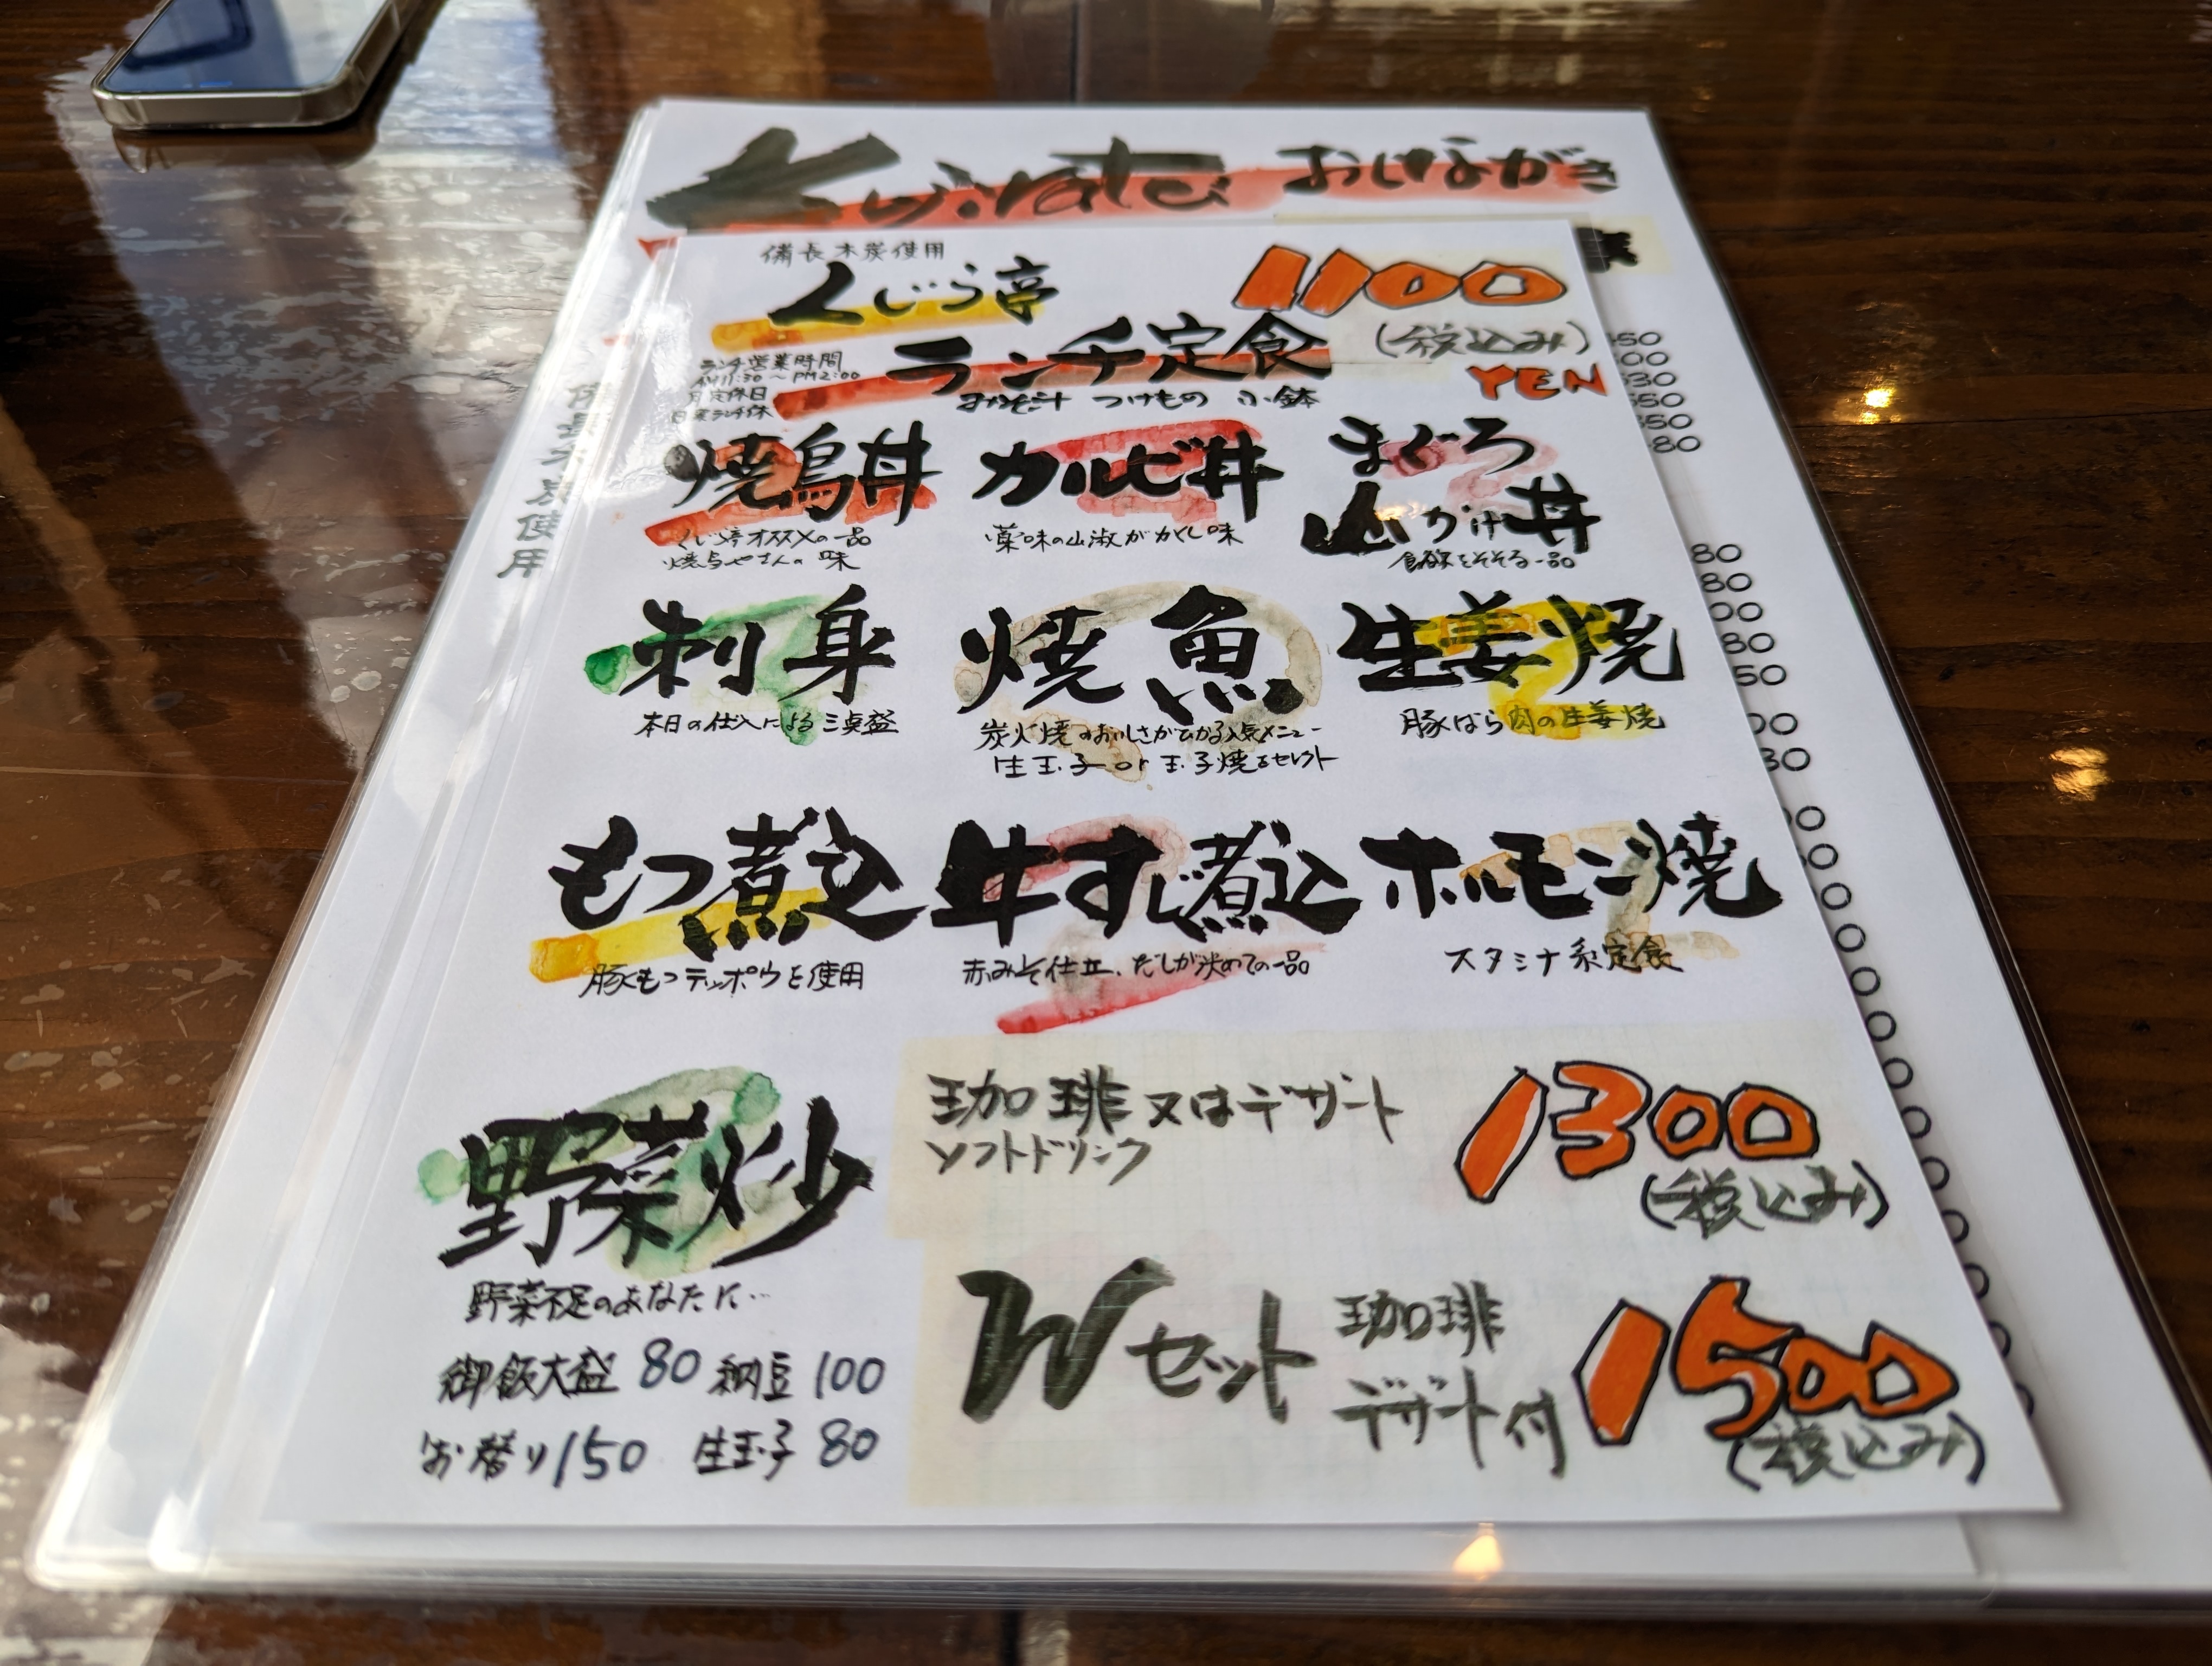 Kujiratei おしながき
備長木炭使用
くじら亭
1100
(税込み)
YEN
ランチ定食
ランチ営業時間
AM11:30～PM2:00
月定休日
日曜ランチ休
みそ汁 つけもの 小鉢
焼鳥丼
くじら亭オススメの一品
焼鳥やさんの味
カルビ丼
薬味の山淑がかくし味
まぐろ
山かけ丼
食欲をそそる一品
刺身
本日の仕入による三点盛
焼魚
炭火焼のおいしさがひかる人気メニュー
生玉子or玉子焼をセレクト
生姜焼
豚ばら肉の生姜焼
もつ煮込
豚もつテッポウを使用
牛すじ煮込
赤みそ仕立、だしが決めての一品
ホルモン焼
スタミナ系定食
野菜炒
野菜不足のあなたに…
御飯大盛 80 納豆 100
お替り 150 生玉子 80
珈琲又はデザート
ソフトドリンク
1300
(税込み)
Wセット
珈琲
デザート付
1500
(税込み)
備長木炭使用